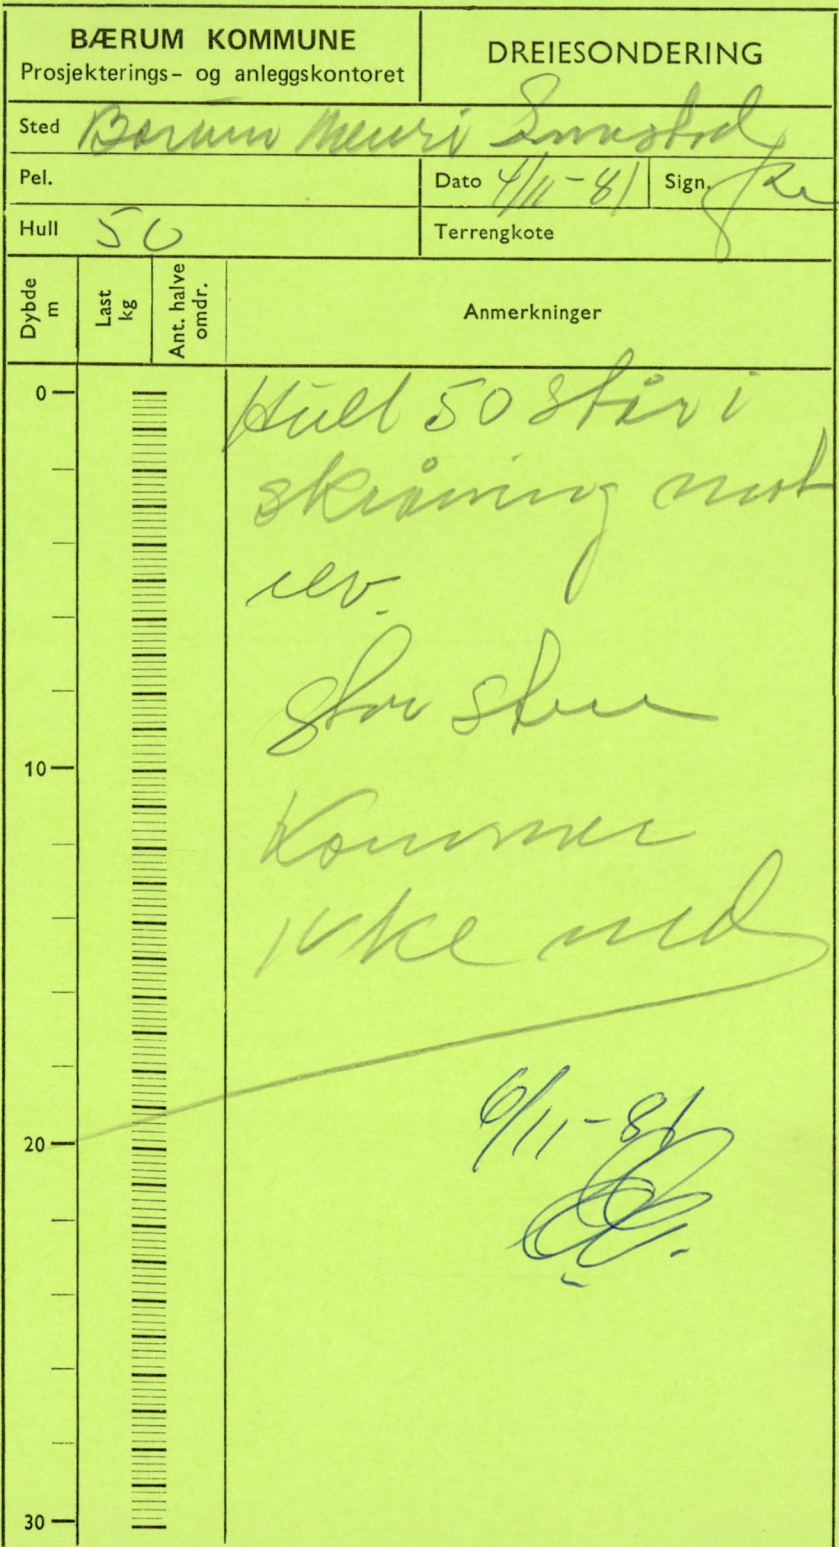 BÆRUM KOMMUNE
Prosjekterings- og anleggskontoret
DREIESONDERING
Sted Bærum
Pel.
Dato 4/11-81
Sign.
Hull 50
Terrengkote
Dybde m
Last kg
Ant. halve omdr.
Anmerkninger
0
10
20
30
Hull 50 står i
skråning mot
elv.
Stor sten
Kommer
ikke ned
6/11-81